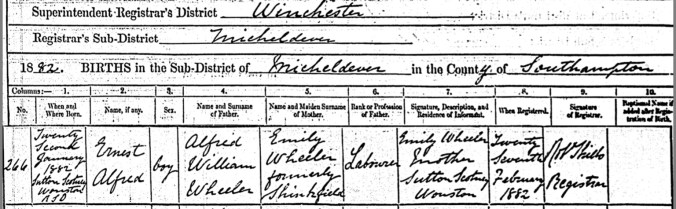 Superintendent Registrar's District Winchester
Registrar's Sub-District Micheldever
1882. BIRTHS in the Sub-District of Micheldever in the County of Southampton
Columns:— 1. 2. 3. 4. 5. 6. 7. 8. 9. 10.
No. When and Where Born. Name, if any. Sex. Name and Surname of Father. Name and Maiden Surname of Mother. Rank or Profession of Father. Signature, Description, and Residence of Informant. When Registered. Signature of Registrar. Baptismal Name if added after Registration of Birth.
266
Twenty
Second
January
1882
Sutton Scotney
Wonston
RSD
Ernest
Alfred
boy
Alfred
William
Wheeler
Emily
Wheeler
formerly
Shinkfield
Labourer
Emily Wheeler
Mother
Sutton Scotney
Wonston
Twenty
Seventh
February
1882
Registrar